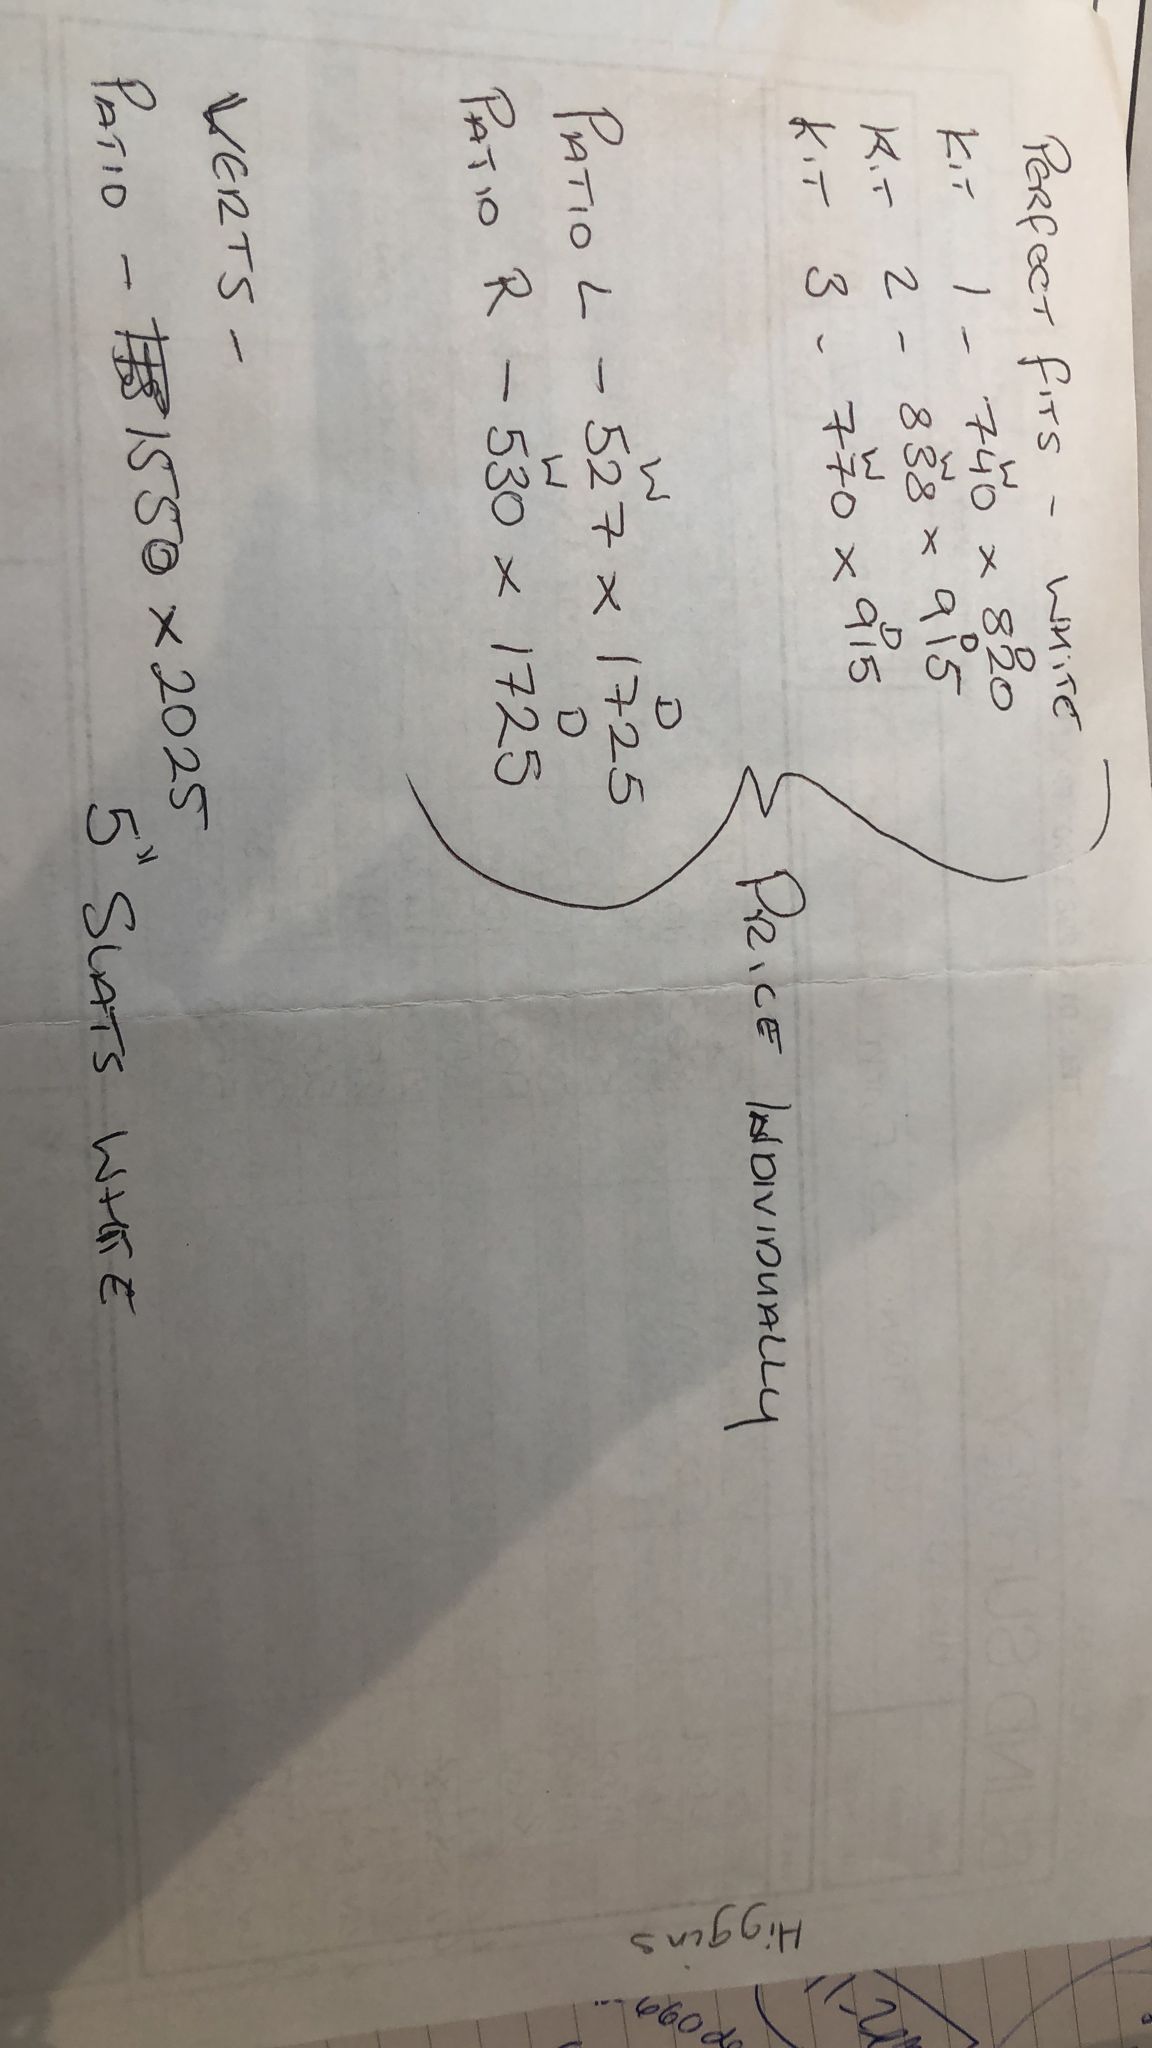 PERFECT FITS - WHITE
KIT 1 - 740 W x 820 D
KIT 2 - 838 W x 915 D
KIT 3 - 770 W x 915 D
PATIO L - 527 W x 1725 D
PATIO R - 530 W x 1725 D
PRICE INDIVIDUALLY
VERTS -
PATIO - 1550 x 2025
5" SLATS WHITE
Higgins